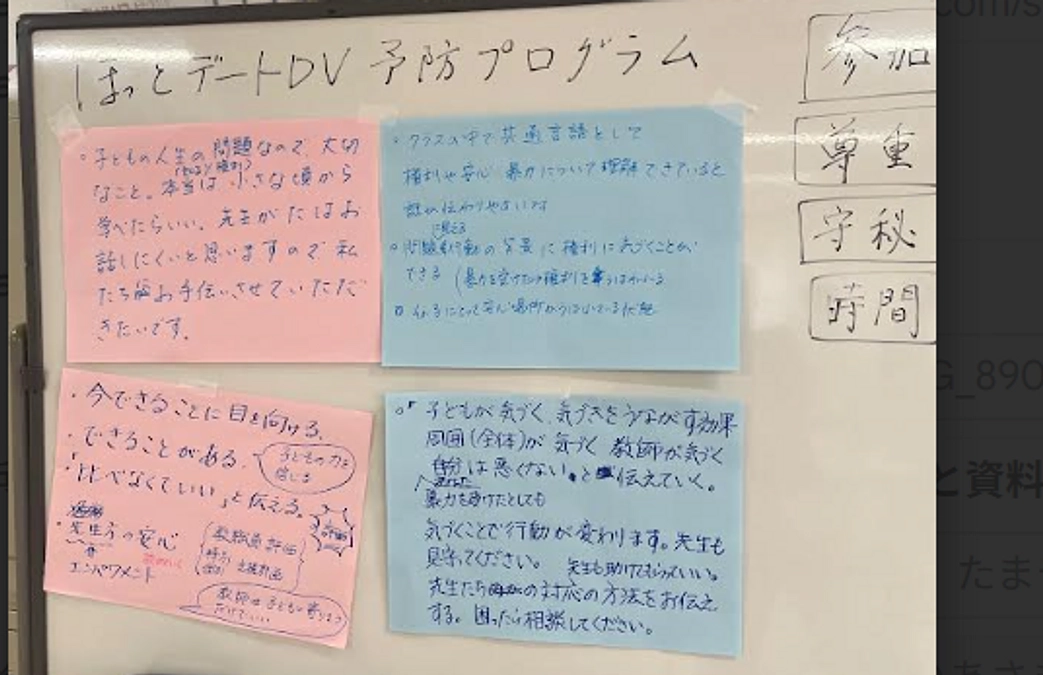 ほっとデートDV 予防プログラム
参加
尊重
守秘
時間
。子どもの人生の問題なので、大切
なこと。本当は小さな頃から
学べたらいい。先生がたはお
話しにくいと思いますので、私
たちがお手伝いさせていただ
きたいです。
。クラスの中で共通言語として
権利や安心 暴力について理解できていると
話が伝わりやすいです
に見える
。問題行動の背景に権利に気づくことが
できる (暴力を受けたり権利を奪うばわれている
・今できることに目を向ける。
・できることがある。
子どもの力を
信じる
・「比べなくていい」と伝える。
・先生方の安心
エンパワメント
教職員評価
教師は子どもに寄りそう
だけでいい
。「子どもが気づく、気づきをうながす効果
周囲(全体)が気づく 教師が気づく
自分は悪くない。と伝えていく。
あなた
暴力を受けたとしても
気づくことで行動が変わります。先生も
見守ってください。 先生も助けてもらっていい。
先生たちの対応の方法をお伝え
する。困ったら相談してください。
com/s
G_890
と資料
たま